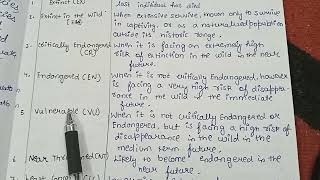 1. Extinct (EX) last individual has died
2. Extinct in the Wild (EW) When extensive survive, known only to survive in captivity, or as a naturalised population outside its historic range.
3. Critically Endangered (CR) When it is facing an extremely high risk of extinction in the wild in the near future.
4. Endangered (EN) When it is not critically Endangered, however is facing a very high risk of disappearance in the wild in the immediate future.
5 Vulnerable (VU) When it is not critically Endangered or Endangered, but is facing a high risk of disappearance in the wild in the medium term future.
6 Near Threatened (NT) Likely to become endangered in the near future.